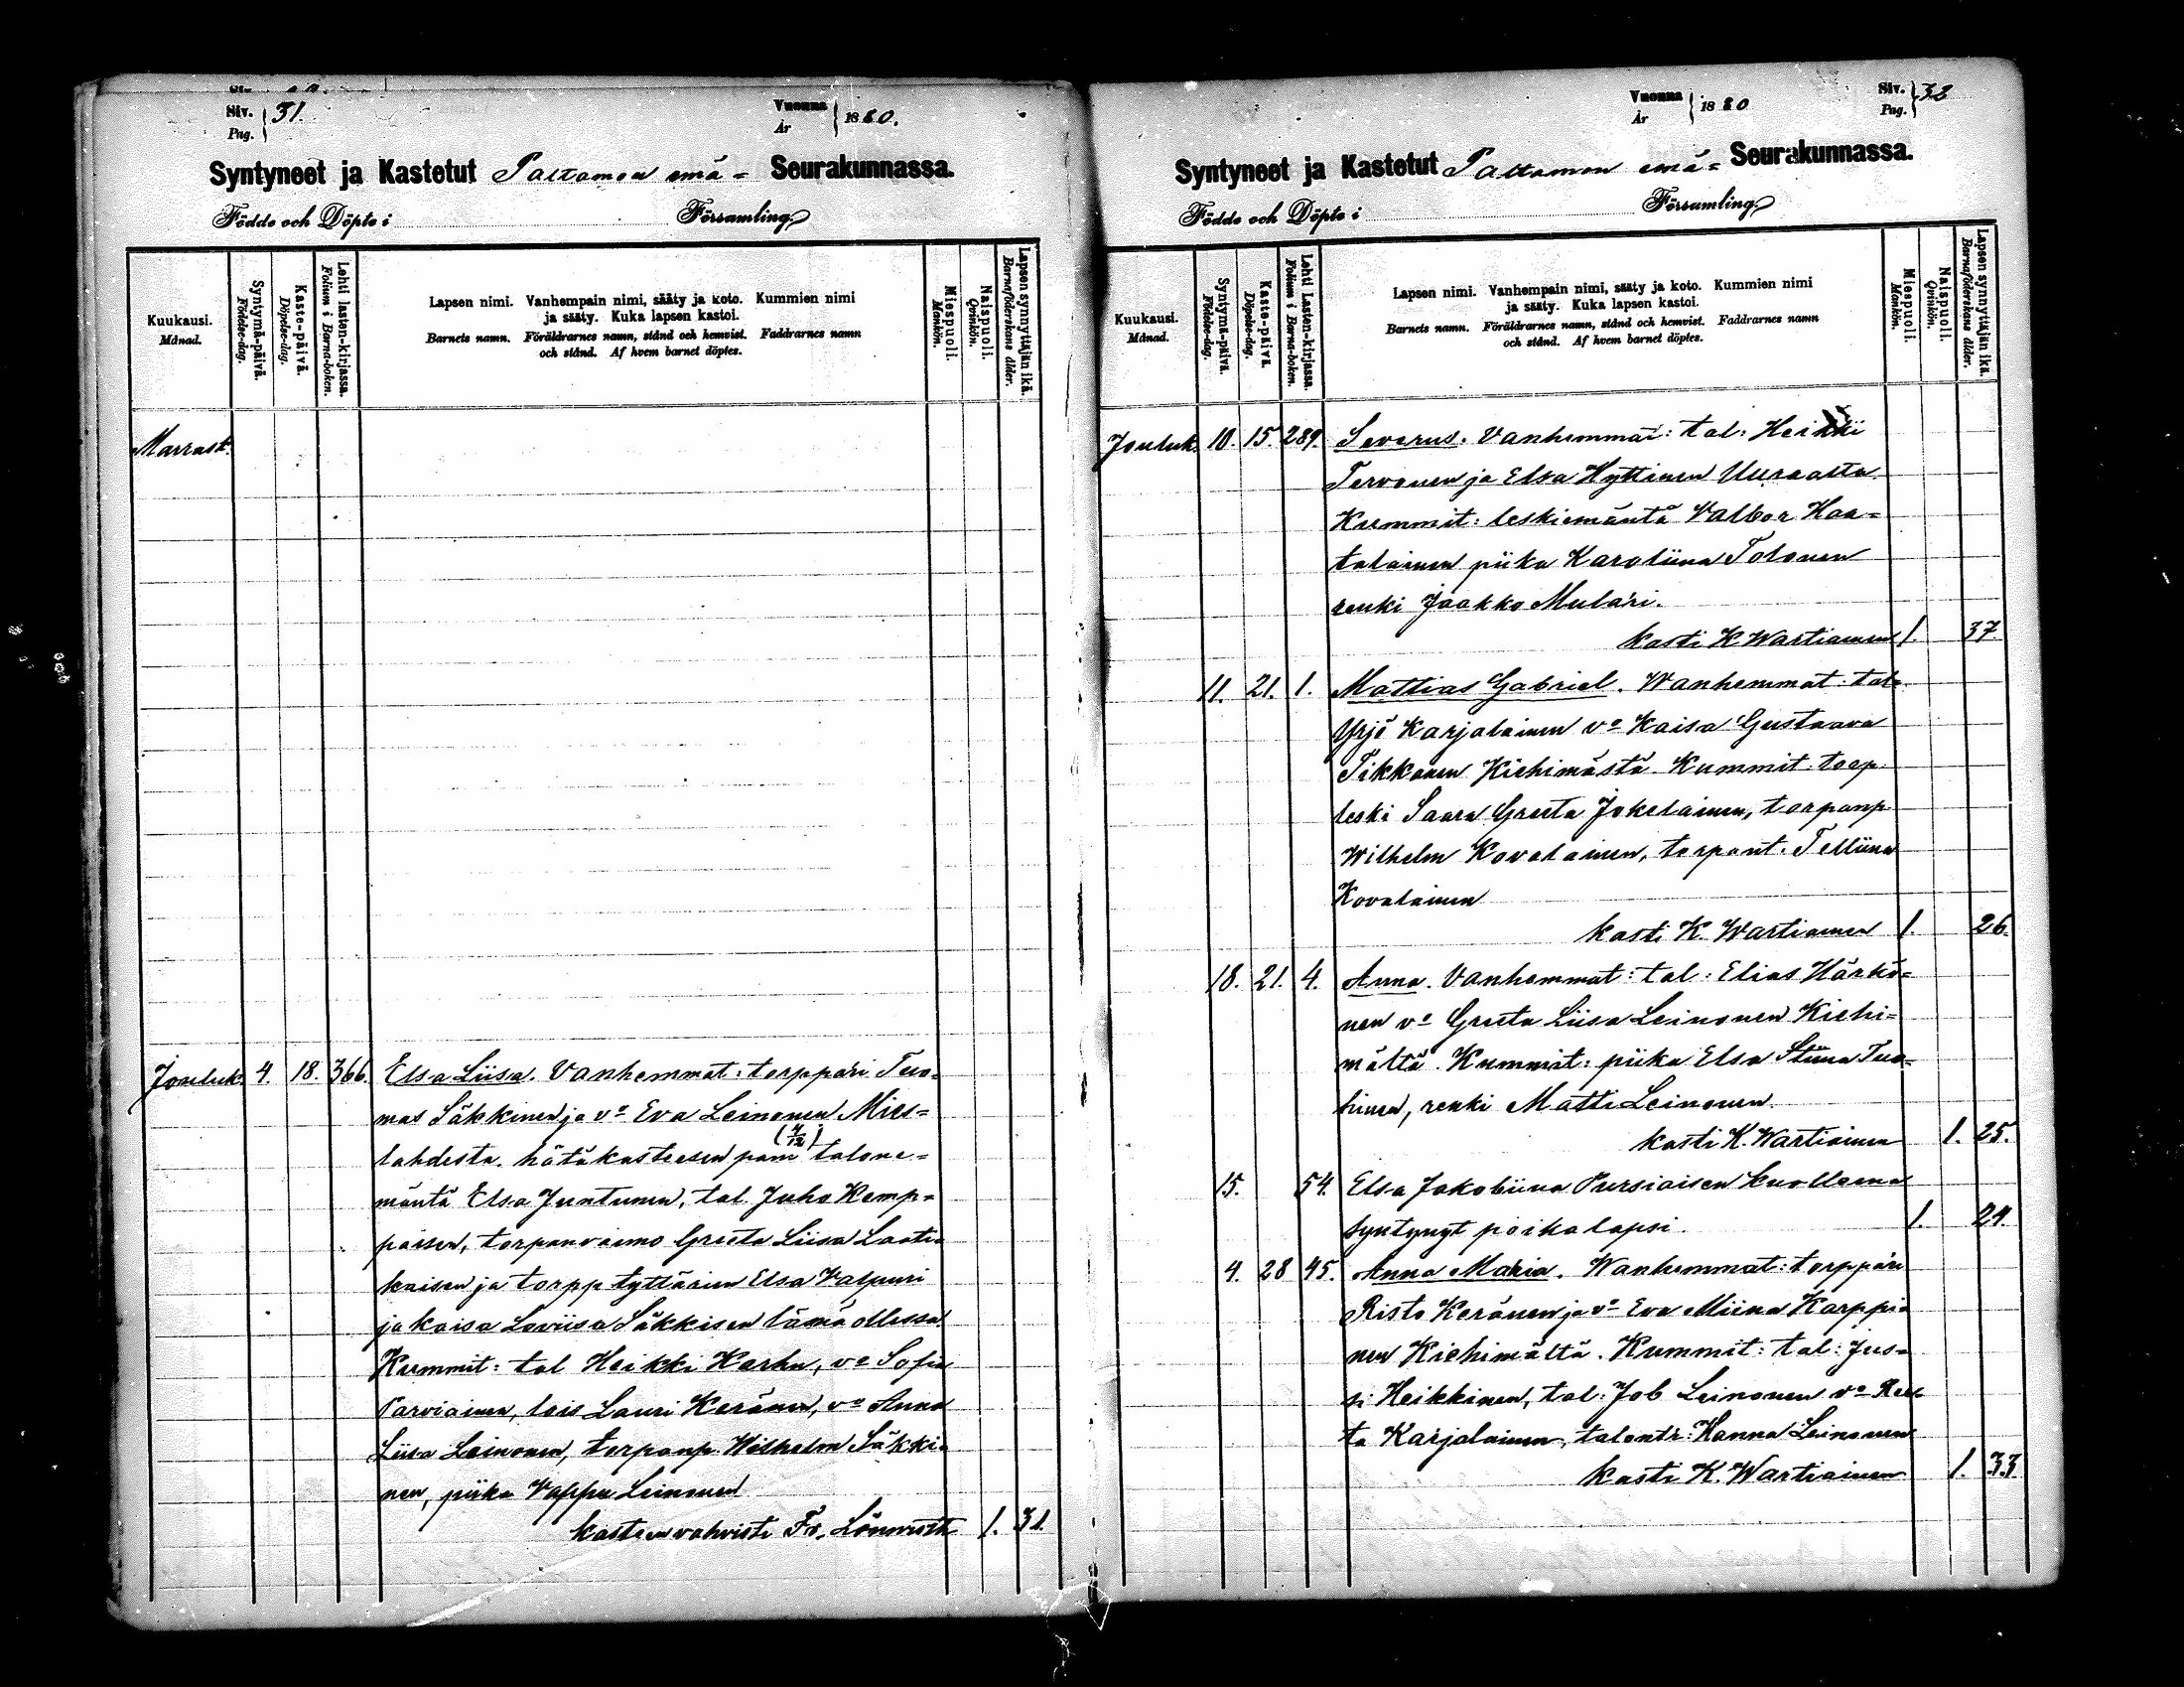 Siv. Pag. 31.
Vuonna År 1880.
Syntyneet ja Kastetut Paltamon emä- Seurakunnassa.
Födde och Döpte i Församling.
Kuukausi. Månad.
Syntymä-päivä. Födelse-dag.
Kaste-päivä. Döpelse-dag.
Lehti lasten-kirjassa. Folium i Barna-boken.
Lapsen nimi. Vanhempain nimi, sääty ja koto. Kummien nimi
ja sääty. Kuka lapsen kastoi.
Barnets namn. Föräldrarnes namn, stånd och hemvist. Faddrarnes namn
och stånd. Af hvem barnet döptes.
Miespuoli. Mankön.
Naispuoli. Qvinkön.
Lapsen synnyttäjän ikä. Barnaföderskans ålder.
Marrask.
Jouluk. 4. 18. 366. Elsa Liisa. Vanhemmat: torppari Tuo-
mas Säkkinen ja vo Eva Leinonen Mies-
(4/12)
lahdesta. hätäkasteesen pani talone-
mäntä Elsa Juntunen, tal. Juho Kemp-
paisen, torpanvaimo Greeta Liisa Laati-
kaisen ja torpp tyttärien Elsa Valpuri
ja Kaisa Loviisa Säkkisen läsnä ollessa.
Kummit: tal Heikki Karhu, vo Sofia
Parviainen, lois Lauri Keränen, vo Anna
Liisa Leinonen, torpanp. Wilhelm Säkki-
nen, piika Vappu Leinonen
kasteen vahvisti Fr. Lönnroth 1. 31.
Siv. Pag. 32
Vuonna År 1880
Syntyneet ja Kastetut Paltamon emä- Seurakunnassa.
Födde och Döpte i Församling.
Kuukausi. Månad.
Syntymä-päivä. Födelse-dag.
Kaste-päivä. Döpelse-dag.
Lehti Lasten-kirjassa. Folium i Barna-boken.
Lapsen nimi. Vanhempain nimi, sääty ja koto. Kummien nimi
ja sääty. Kuka lapsen kastoi.
Barnets namn. Föräldrarnes namn, stånd och hemvist. Faddrarnes namn
och stånd. Af hvem barnet döptes.
Miespuoli. Mankön.
Naispuoli. Qvinkön.
Lapsen synnyttäjän ikä. Barnaföderskans ålder.
Jouluk. 10. 15. 289. Severus. Vanhemmat: tal: Heikki
Tervonen ja Elsa Hyttinen Uuraalta.
Kummit: leskiemäntä Valbor Haa-
talainen piika Karoliina Tolonen
renki Jaakko Mulari.
kasti K. Wartiainen 1. 37.
11. 21. 1. Mattias Gabriel. Wanhemmat: tal.
Yrjö Karjalainen vo Kaisa Gustaava
Tikkanen Kiehimästä. Kummit: torp.
leski Saara Greeta Jokelainen, torpanp.
Wilhelm Kovalainen, torpant. Telliina
Kovalainen
kasti K. Wartiainen 1. 26.
18. 21. 4. Anna. Vanhemmat: tal: Elias Härkö-
nen vo Greeta Liisa Leinonen Kiehi-
mältä. Kummit: piika Elsa Stiina Tuo-
hinen, renki Matti Leinonen.
kasti K. Wartiainen 1. 25.
15. 54. Elsa Jakobiina Pursiaisen kuolleena
syntynyt poikalapsi. 1. 24.
4. 28 45. Anna Maria. Wanhemmat: torppari
Risto Keränen ja vo Eva Miina Karppi-
nen Kiehimältä. Kummit: tal: Jus-
si Heikkinen, tal: Job Leinonen vo Ree-
ta Karjalainen, talontr: Hanna Leinonen
kasti K. Wartiainen 1. 33